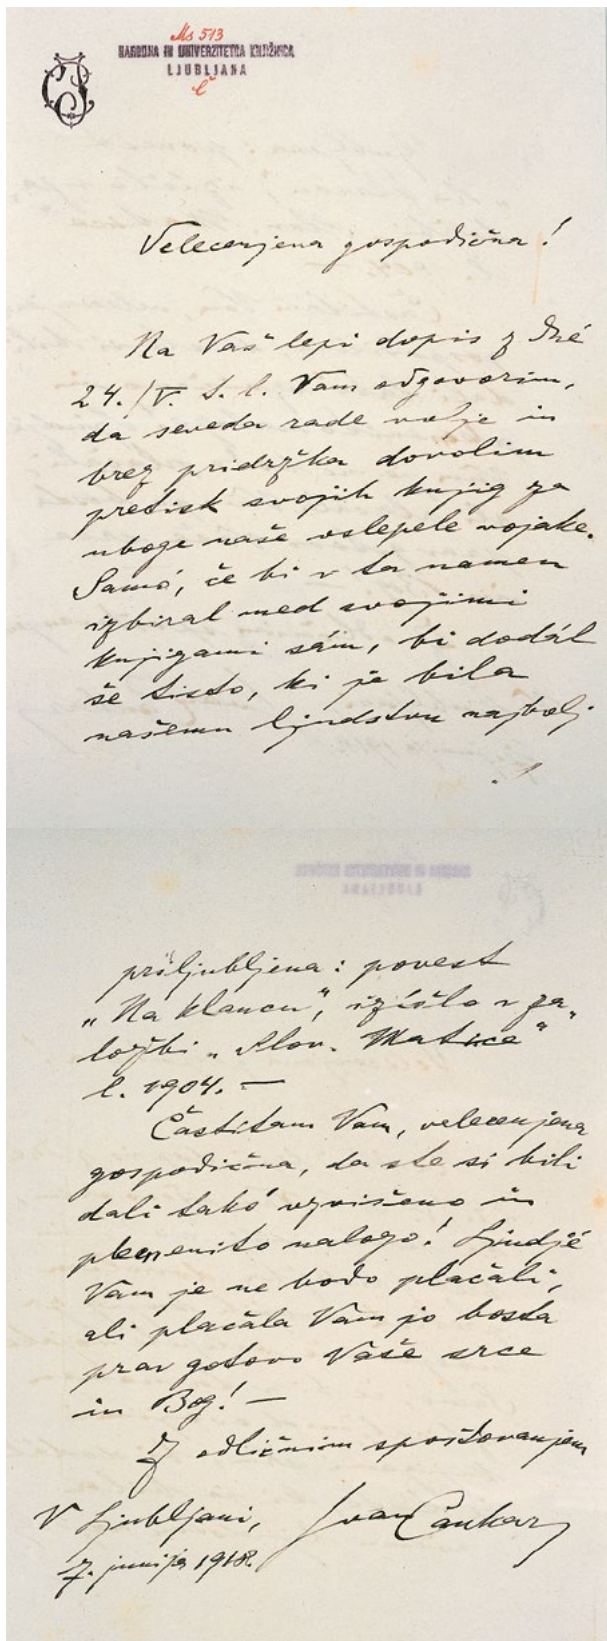 Ms 513
NARODNA IN UNIVERZITETNA KNJIŽNICA
LJUBLJANA
Č
Velecenjena gospodična!
Na Vaš lepi dopis z dné
24./V. t. l. Vam odgovorim,
da seveda rade volje in
brez pridržka dovolim
pretisk svojih knjig za
uboge naše oslepele vojake.
Samó, če bi v ta namen
izbiral med svojimi
knjigami sám, bi dodál
še tisto, ki je bila
našemu ljudstvu najbolj
priljubljena: povest
„Na klancu", izišlo v za-
ložbi „Slov. Matice"
l. 1904. —
Častitam Vam, velecenjena
gospodična, da ste si bili
dali takó vzvišeno in
plemenito nalogo! Ljudjé
Vam je ne bodo plačáli,
ali plačala Vam jo bosta
prav gotovo Vaše srce
in Bog! —
Z odličnim spoštovanjem
V Ljubljani, Ivan Cankar
7. junija 1918.